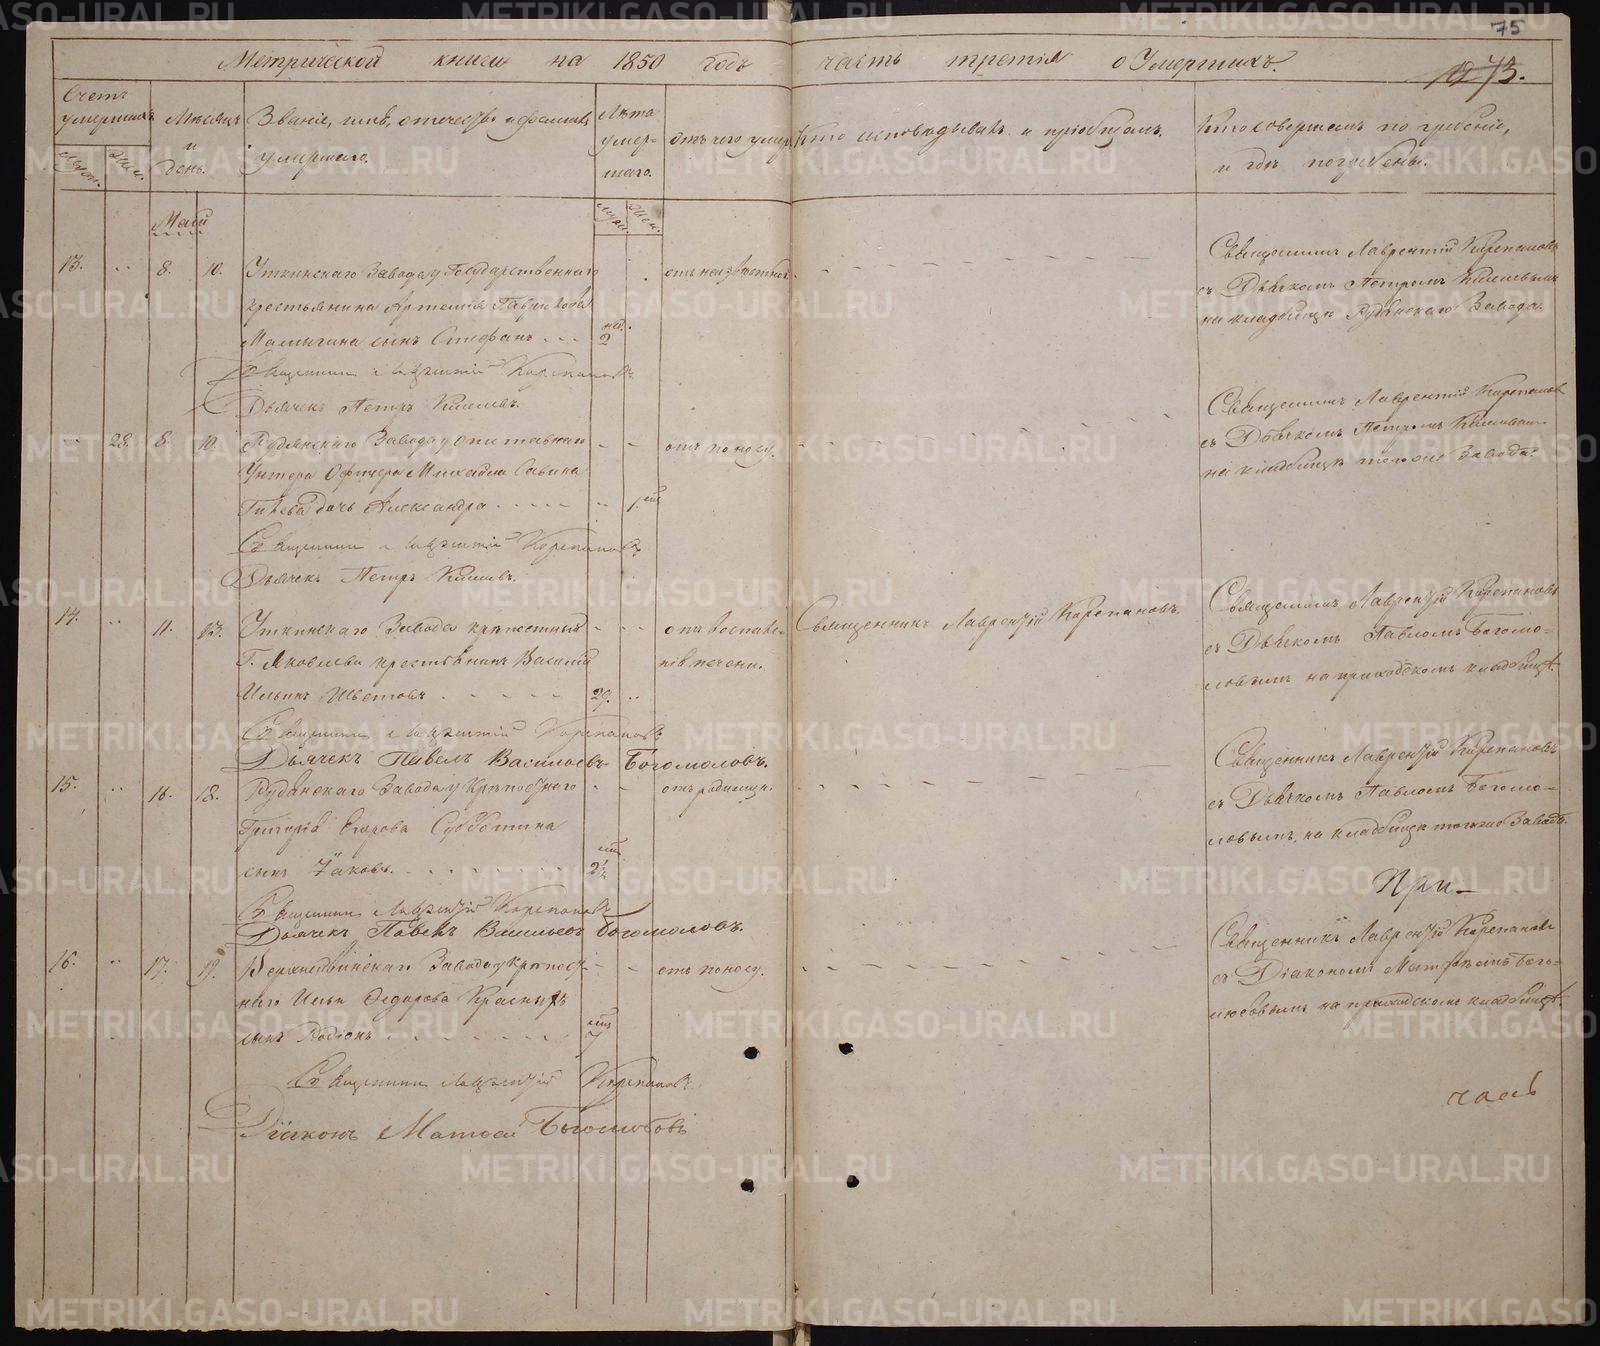 75
Метрической книги на 1850 годъ часть третія о Умершихъ.
73.
Счетъ умершихъ
Мѣсяцъ и день.
Званіе, имя, отечество и фамилія умершаго.
Лѣта умершаго.
отъ чего умеръ
Кто исповѣдывалъ и пріобщалъ.
Кто совершалъ погребеніе, и гдѣ погребены.
Май
13. 8. 10. Уткинскаго Завода у Государственнаго
крестьянина Артемія
сынъ Стефанъ
2 нед.
Священникъ Лаврентій Корепановъ
съ Дьячкомъ Петромъ
на кладбищѣ Рудянскаго Завода.
Священникъ Лаврентій Корепановъ
Дьячекъ Петръ
28. 8. 10. Рудянскаго Завода у отставнаго
Унтера Офицера Михаила Савина
дочь Александра
1.
отъ поносу.
Священникъ Лаврентій Корепановъ
съ Дьячкомъ Петромъ
на кладбищѣ тогоже Завода.
Священникъ Лаврентій Корепановъ
Дьячекъ Петръ
14. 11. 13. Уткинскаго Завода крѣпостный
Г. Яковлева крестьянинъ Василій
Ильинъ
29.
отъ воспале-
нія печени.
Священникъ Лаврентій Корепановъ.
Священникъ Лаврентій Корепановъ
съ Дьячкомъ Павломъ Богомо-
ловымъ на приходскомъ кладбищѣ.
Священникъ Лаврентій Корепановъ
Дьячекъ Павелъ Васильевъ Богомоловъ.
15. 16. 18. Рудянскаго Завода у Крѣпостнаго
Григорія Егорова Субботина
сынъ Іаковъ.
2½
отъ родимца.
Священникъ Лаврентій Корепановъ
съ Дьячкомъ Павломъ Богомо-
ловымъ, на кладбищѣ тогоже Завода.
Священникъ Лаврентій Корепановъ
Дьячекъ Павелъ Васильевъ Богомоловъ.
При-
16. 17. 19. Завода у крѣпост-
наго Ильи Ѳедорова Красныхъ
сынъ Родіонъ
7
отъ поносу.
Священникъ Лаврентій Корепановъ
съ Діакономъ Матѳеемъ Бого-
любовымъ на приходскомъ кладбищѣ.
Священникъ Лаврентій Корепановъ
Діаконъ Матѳей Боголюбовъ
часъ
METRIKI.GASO-URAL.RU